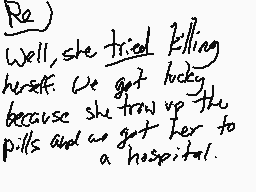 Re
Well, she tried killing
herself. We got lucky
because she trow up the
pills and we got her to
a hospital.